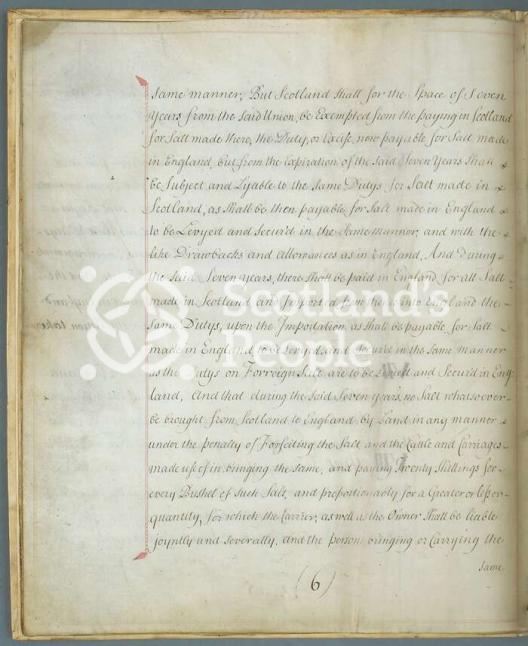 same manner; But Scotland shall for the Space of Seven
years from the said Union, be Exempted from the paying in Scotland
for Salt made there, the Duty, or Excise, now payable for Salt made
in England, but from the Expiration of the said Seven Years Shall
be Subject and Lyable to the same Dutys for Salt made in
Scotland, as Shall be then payable for Salt made in England
to be Levyed and Secur'd in the same manner, and with the
like Drawbacks and allowances as in England, And during
the said Seven years, there Shall be paid in England for all Salt
made in Scotland and Imported from thence into England the
same Dutys, upon the Importation as shall be payable for Salt
made in England to be Levyed and Secur'd in the same manner
as the Dutys on Forreign Salt are to be Levied and Secur'd in Eng
land, And that during the said Seven years, no Salt whatsoever
be brought from Scotland to England by Land in any manner
under the penalty of Forfeiting the Salt and the Cattle and Carriages
made use of in bringing the same, and paying Twenty Shillings for
every Bushel of such Salt, and proportionably for a Greater or lesser
quantity, for which the Carrier, as well as the Owner Shall be liable
joyntly and severally, And the persons bringing or Carrying the
same
(6)
Scotland's
People